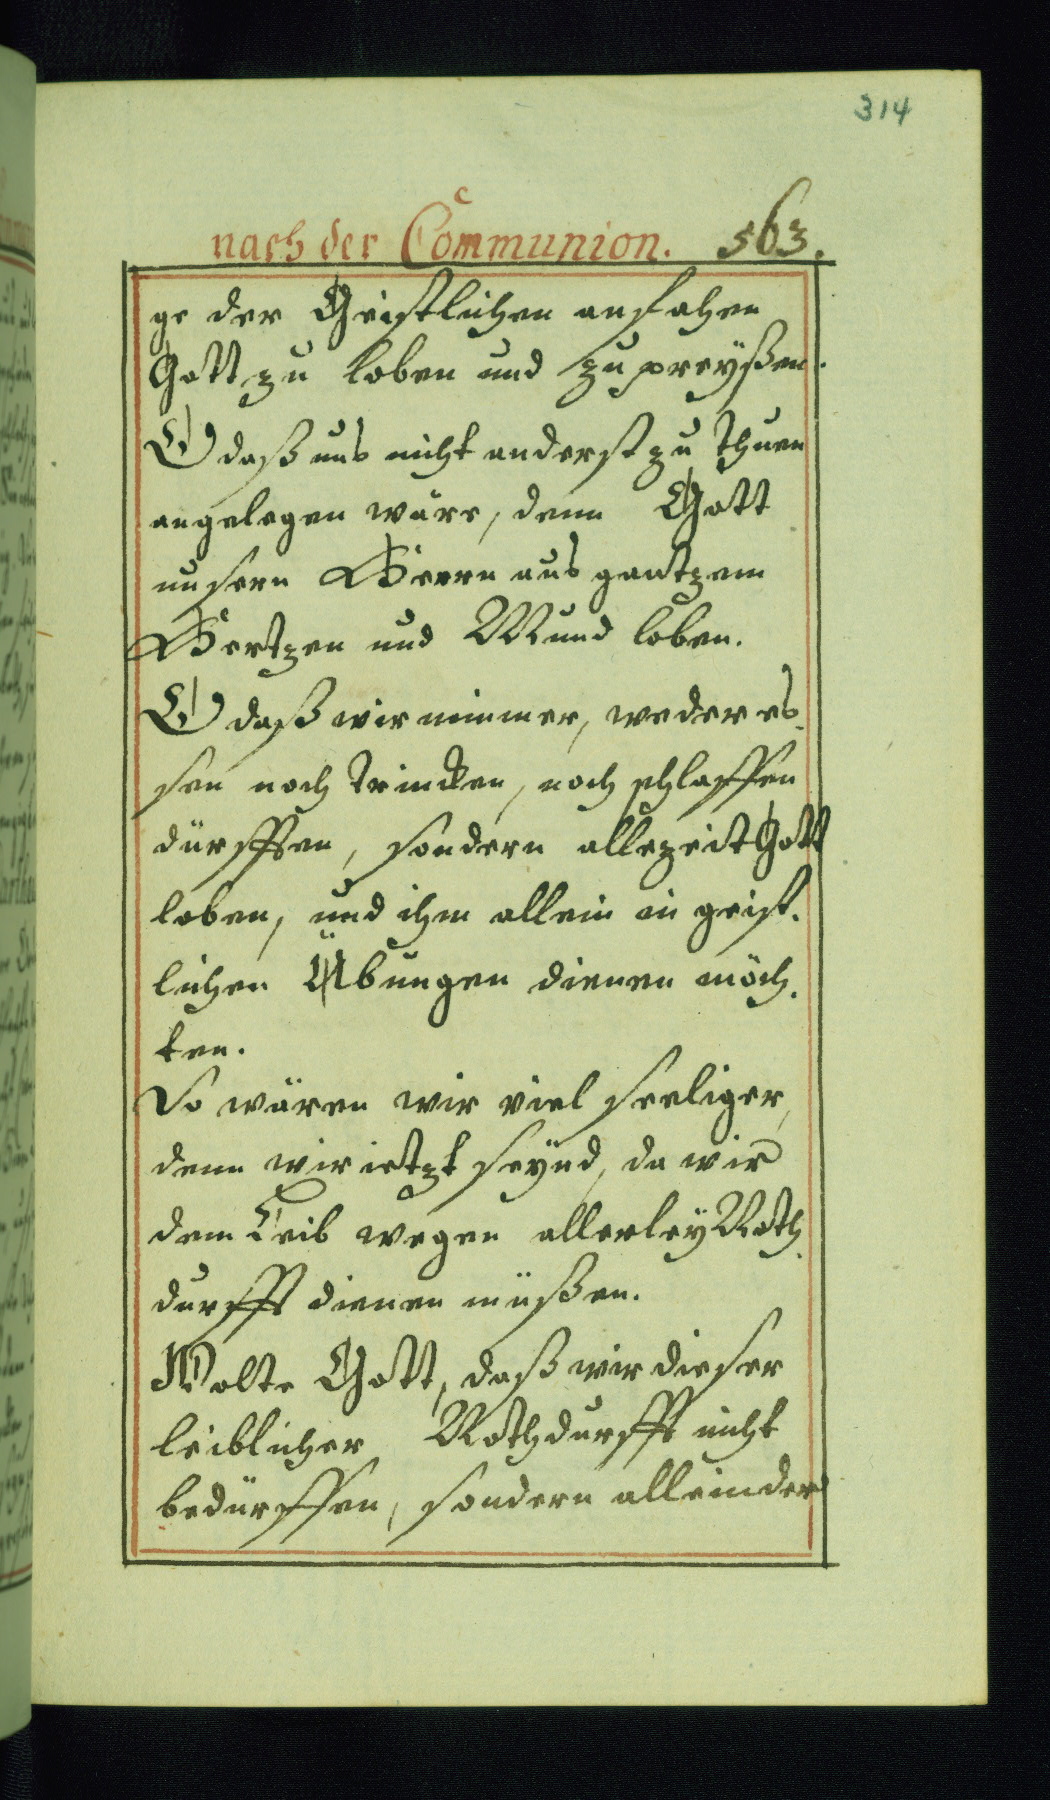 314
nach der Communion. 563.
ge der Geistlichen anfahen
Gott zu loben und zu preyßen.
O daß uns nicht anderst zu thuen
angelegen wäre, denn Gott
unsern Herrn aus gantzem
Hertzen und Mund loben.
O daß wir nimmer, weder es-
sen noch trincken, noch schlaffen
dürfften, sondern allezeit Gott
loben, und ihm allein in geist-
lichen Übungen dienen möch-
ten.
So wären wir viel seeliger,
denn wir ietzt seynd, da wir
dem Leib wegen allerley Noth-
durfft dienen müßen.
Wolte Gott, daß wir dieser
leiblicher Nothdurfft nicht
bedürffen, sondern allein der